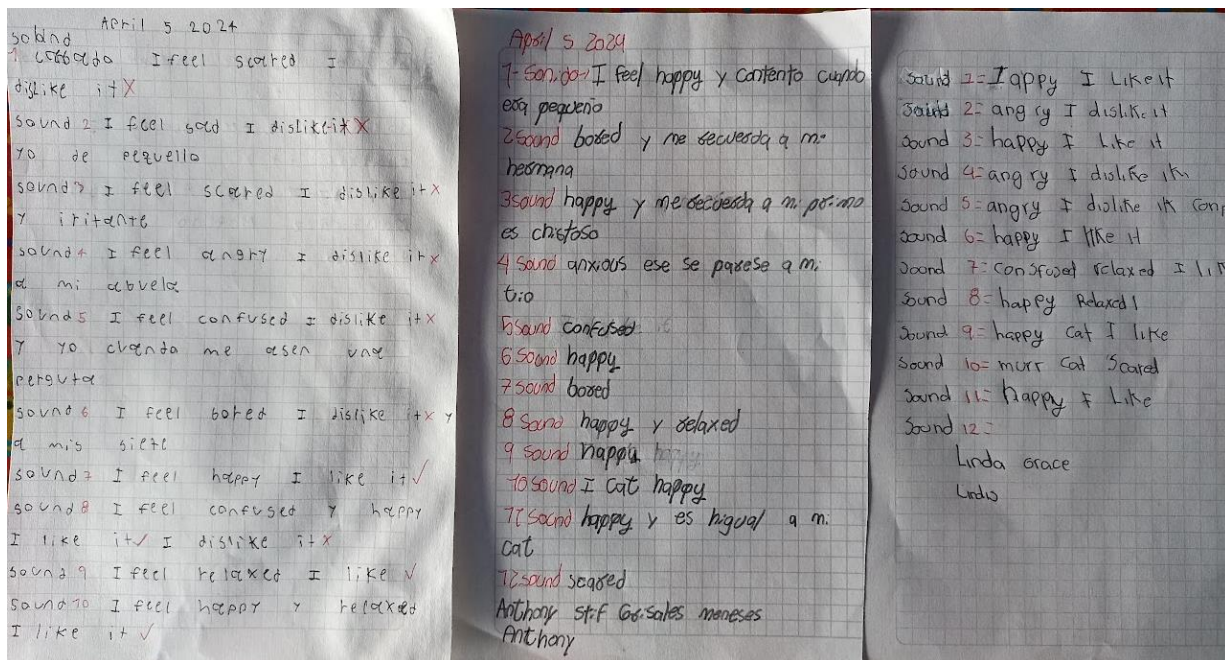 April 5 2024
sound
1 I feel scared I
dislike it X
sound 2 I feel sad I dislike it X
yo de pequello
sound 3 I feel scared I dislike it X
y iritante
sound 4 I feel angry I dislike it X
a mi abuela
sound 5 I feel confused I dislike it X
y yo cuando me asen una
perguta
sound 6 I feel bored I dislike it X y
a mis siete
sound 7 I feel happy I like it ✓
sound 8 I feel confused y happy
I like it ✓ I dislike it X
sound 9 I feel relaxed I like ✓
sound 10 I feel happy y relaxed
I like it ✓
April 5 2024
1- Sonido- I feel happy y contento cuando
era pequeño
2 sound bored y me recuerda a mi
hermana
3 sound happy y me recuerda a mi primo
es chistoso
4 sound anxious ese se parese a mi
tio
5 sound confused
6 sound happy
7 sound bored
8 sound happy y relaxed
9 sound happy
10 sound I cat happy
11 sound happy y es higual a mi
cat
12 sound scared
Anthony Stif Grisales meneses
Anthony
Sound 1= I appy I Like it
Sound 2= angry I dislike it
Sound 3= happy I Like it
Sound 4= angry I dislike
Sound 5= angry I dislike
Sound 6= happy I like it
Sound 7= consfused relaxed I
Sound 8= happy Relaxed I
Sound 9= happy Cat I like
Sound 10= murr Cat Scared
Sound 11= happy I Like
Sound 12=
Linda Grace
Linda